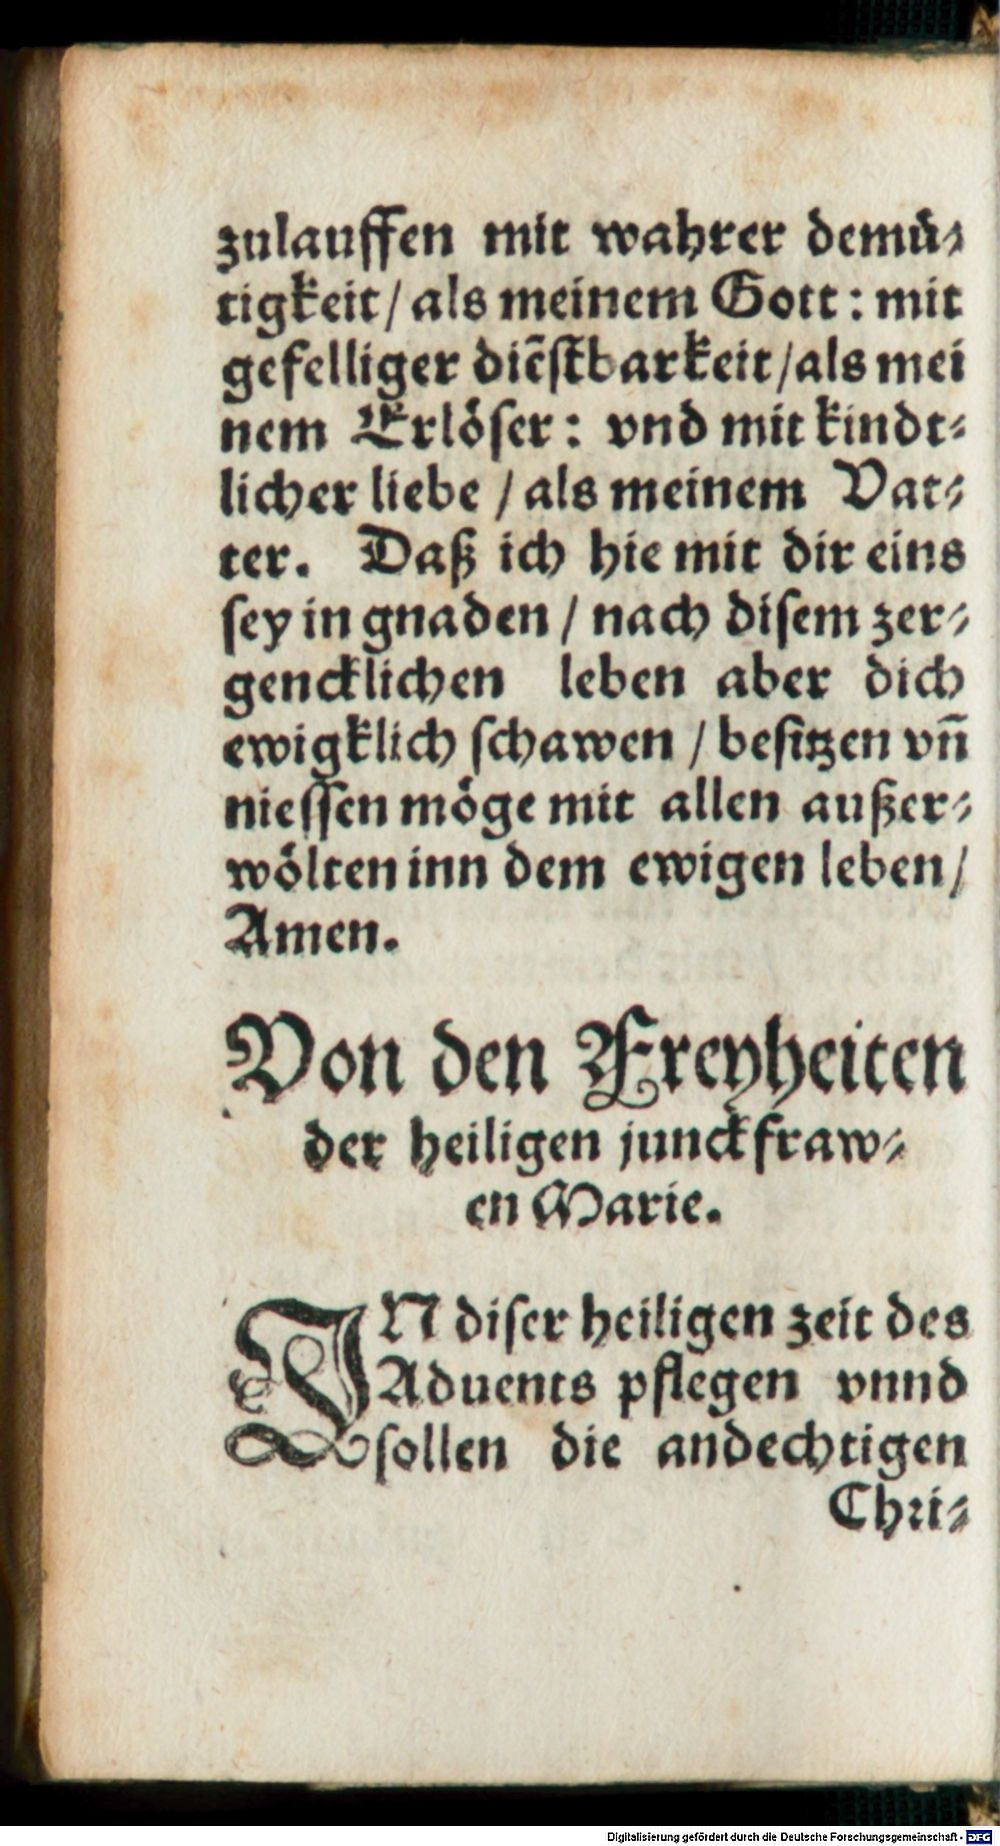 zulauffen mit wahrer demü⸗
tigkeit / als meinem Gott : mit
gefelliger diẽstbarkeit / als mei
nem Erlöser : vnd mit kindt⸗
licher liebe / als meinem Vat⸗
ter. Daß ich hie mit dir eins
sey in gnaden / nach disem zer⸗
gencklichen leben aber dich
ewigklich schawen / besitzen vñ
niessen möge mit allen außer⸗
wölten inn dem ewigen leben /
Amen.
Von den Freyheiten
der heiligen junckfraw⸗
en Marie.
IN diser heiligen zeit des
Aduents pflegen vnnd
sollen die andechtigen
Chri⸗
Digitalisierung gefördert durch die Deutsche Forschungsgemeinschaft - DFG